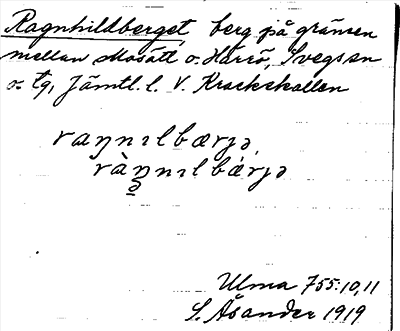 Ragnhildberget, berg på gränsen
mellan Mosätt o. Härrö, Svegs sn
o. tg, Jämtl. l. V. Krackskallen
raŋnɪlbærjə,
ràŋnɪlbærjə
ə
Ulma 755:10,11
S. Åsander 1919